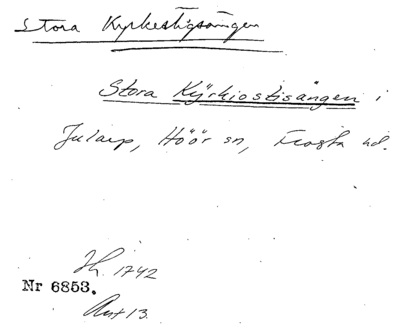 Stora Kyrkestigsängen
Stora Kÿrkiostisängen i
Jularp, Höör sn, Frosta hd.
Jh. 1742
Nr 6853.
Ant 13.